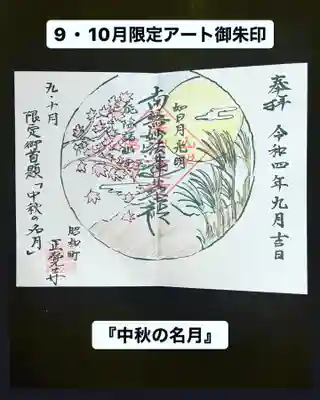 9・10月限定アート御朱印
奉拝
令和四年九月吉日
如日月光明
南無妙法蓮華経
能除諸
九・十月
限定御首題「中秋の名月」
昭和町
正覚寺
『中秋の名月』